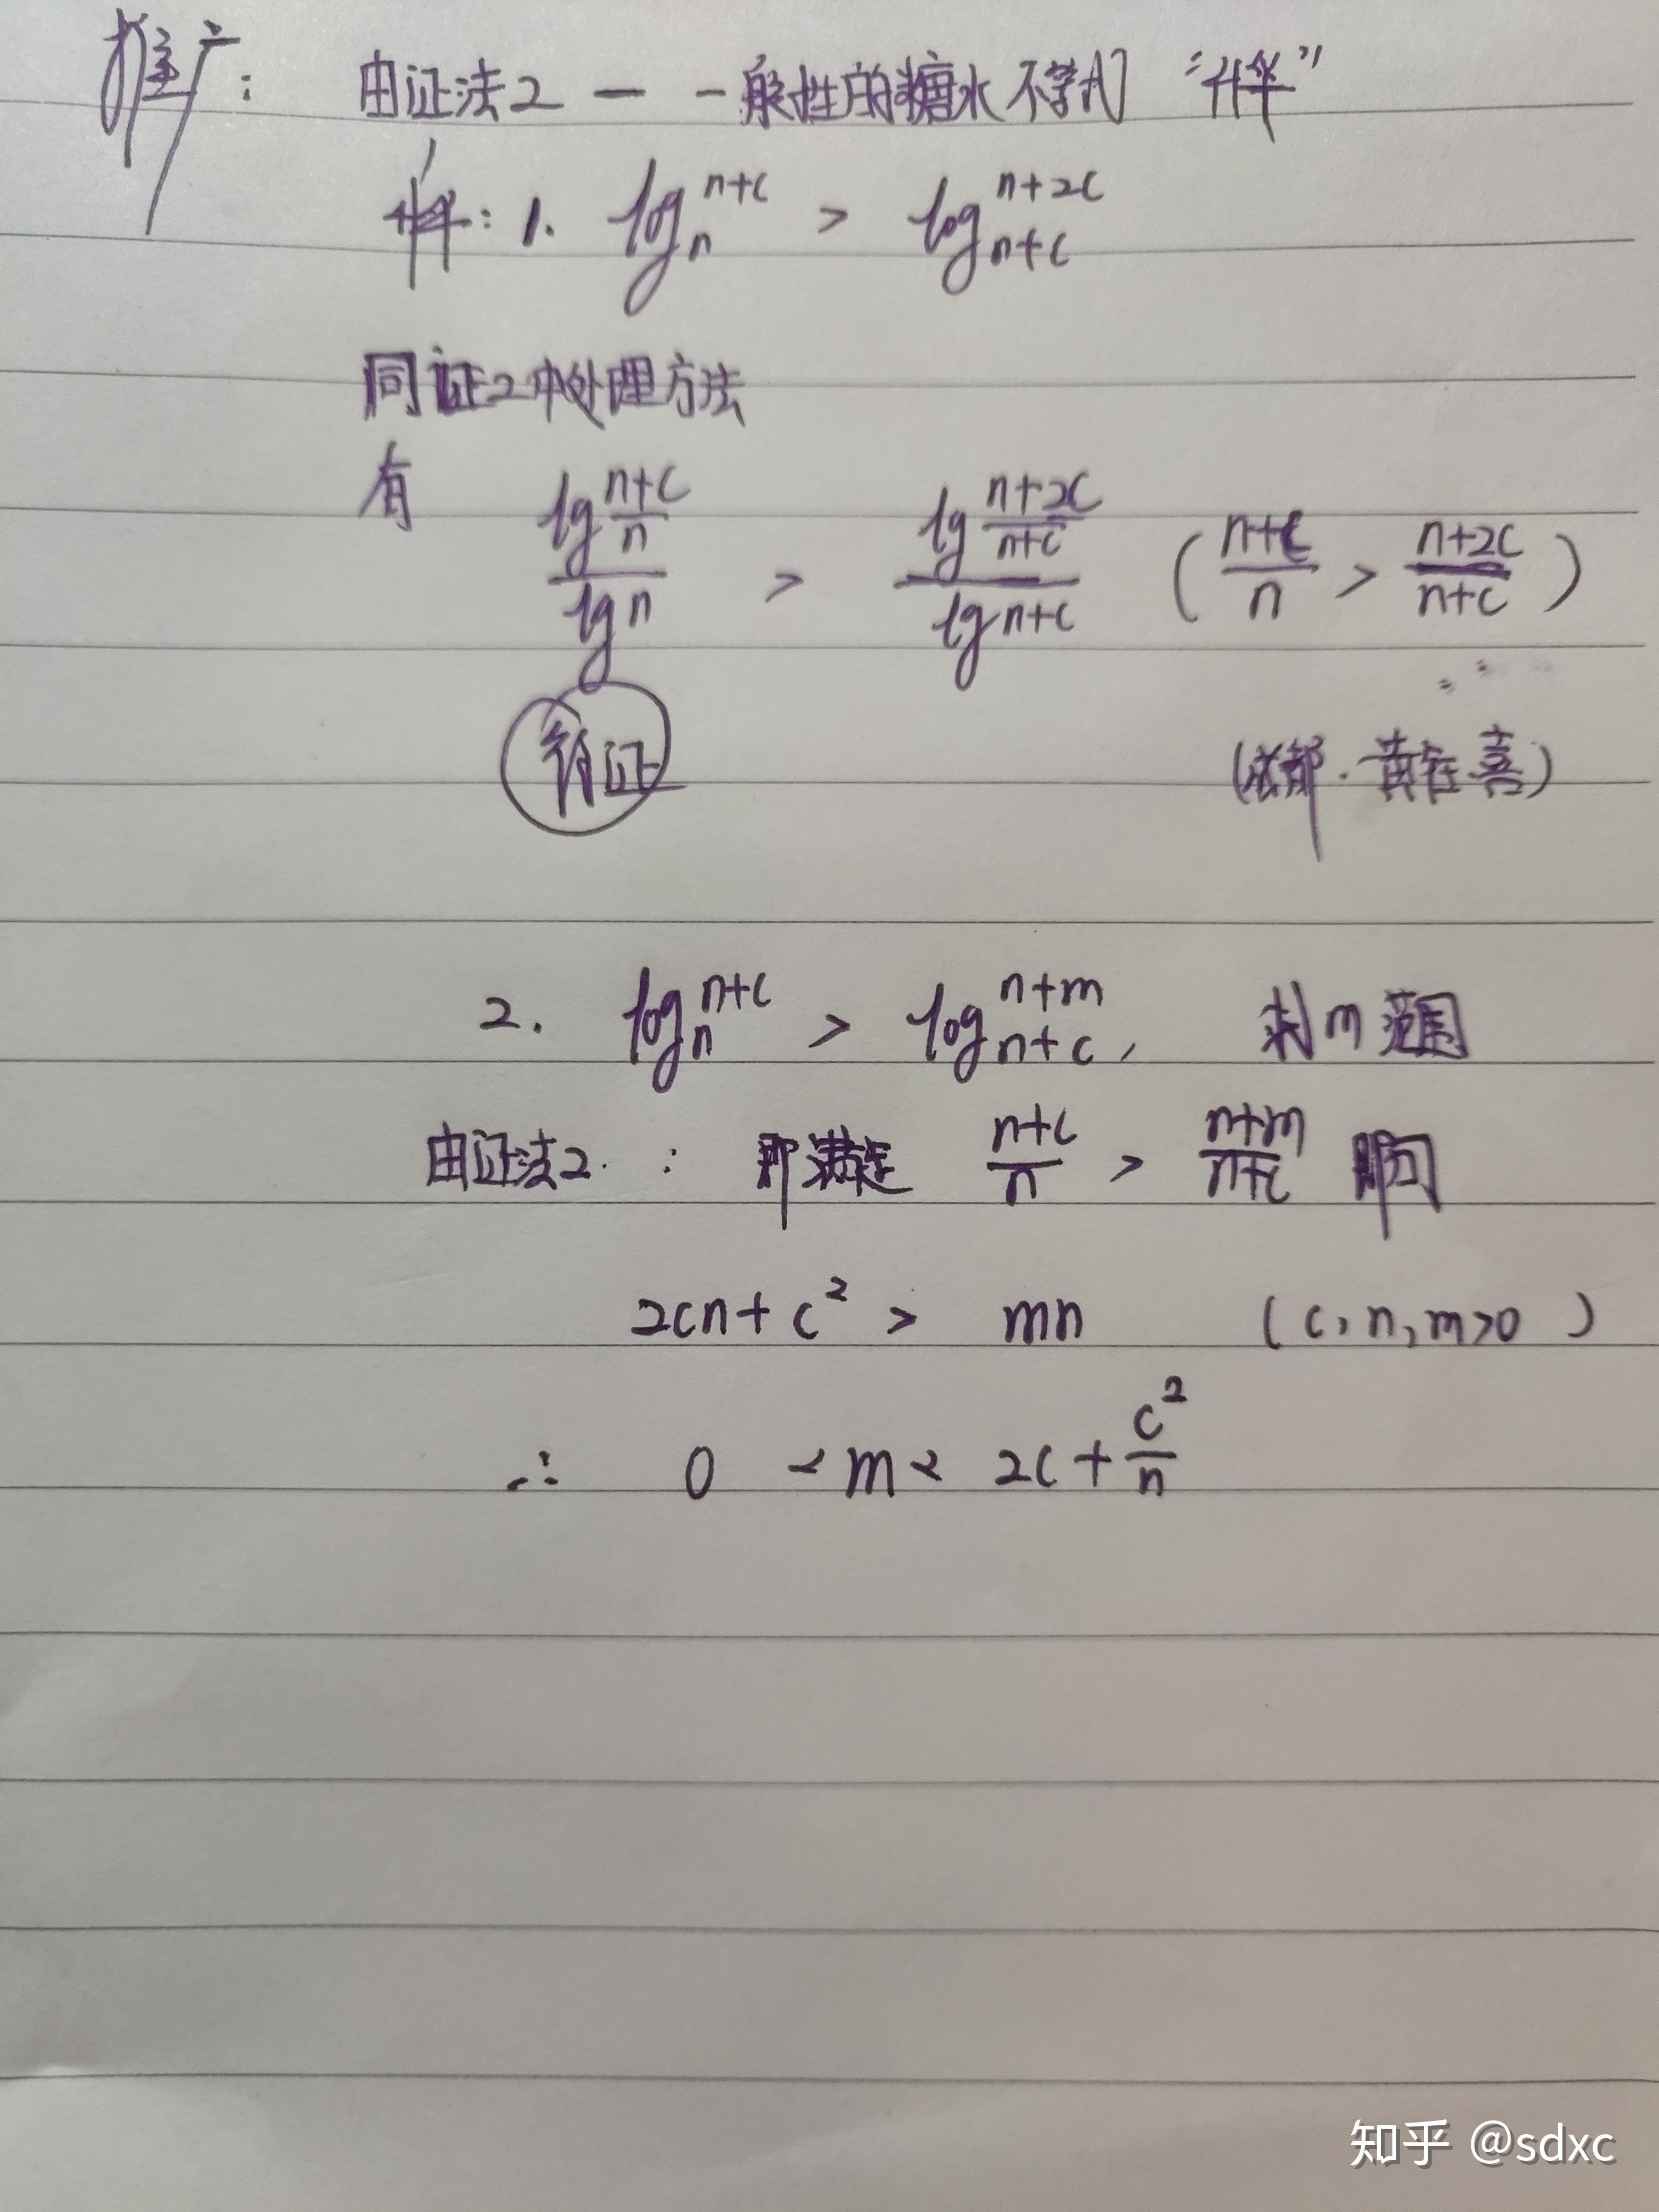 推广: 由证法2 — 一般性的糖水不等式 “升华”
升华: 1. log_n^{n+c} > log_{n+c}^{n+2c}
同证2中处理方法
有 \frac{lg \frac{n+c}{n}}{lg n} > \frac{lg \frac{n+2c}{n+c}}{lg n+c} ( \frac{n+c}{n} > \frac{n+2c}{n+c} )
得证
(成都·黄
2. log_n^{n+c} > log_{n+c}^{n+m}, 求m范围
由证法2: 即满足 \frac{n+c}{n} > \frac{n+m}{n+c} 即可
2cn + c² > mn (c, n, m>0)
∴ 0 < m < 2c + \frac{c²}{n}
知乎 @sdxc